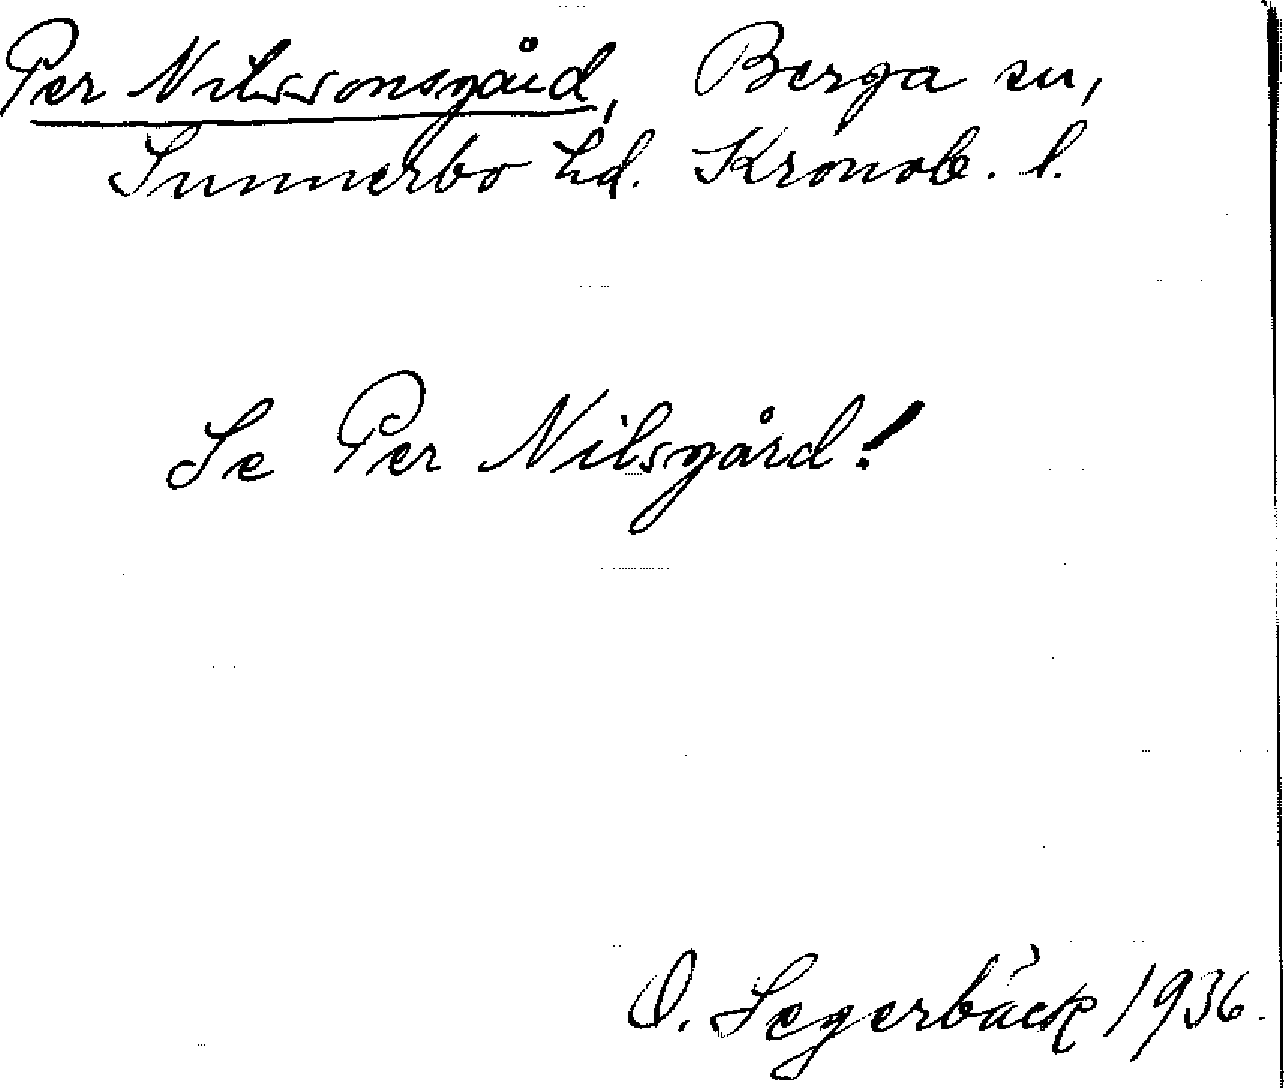 Per Nilssonsgård, Berga sn,
Sunnerbo hd. Kronob. l.
Se Per Nilsgård!
O. Segerbäck 1936.